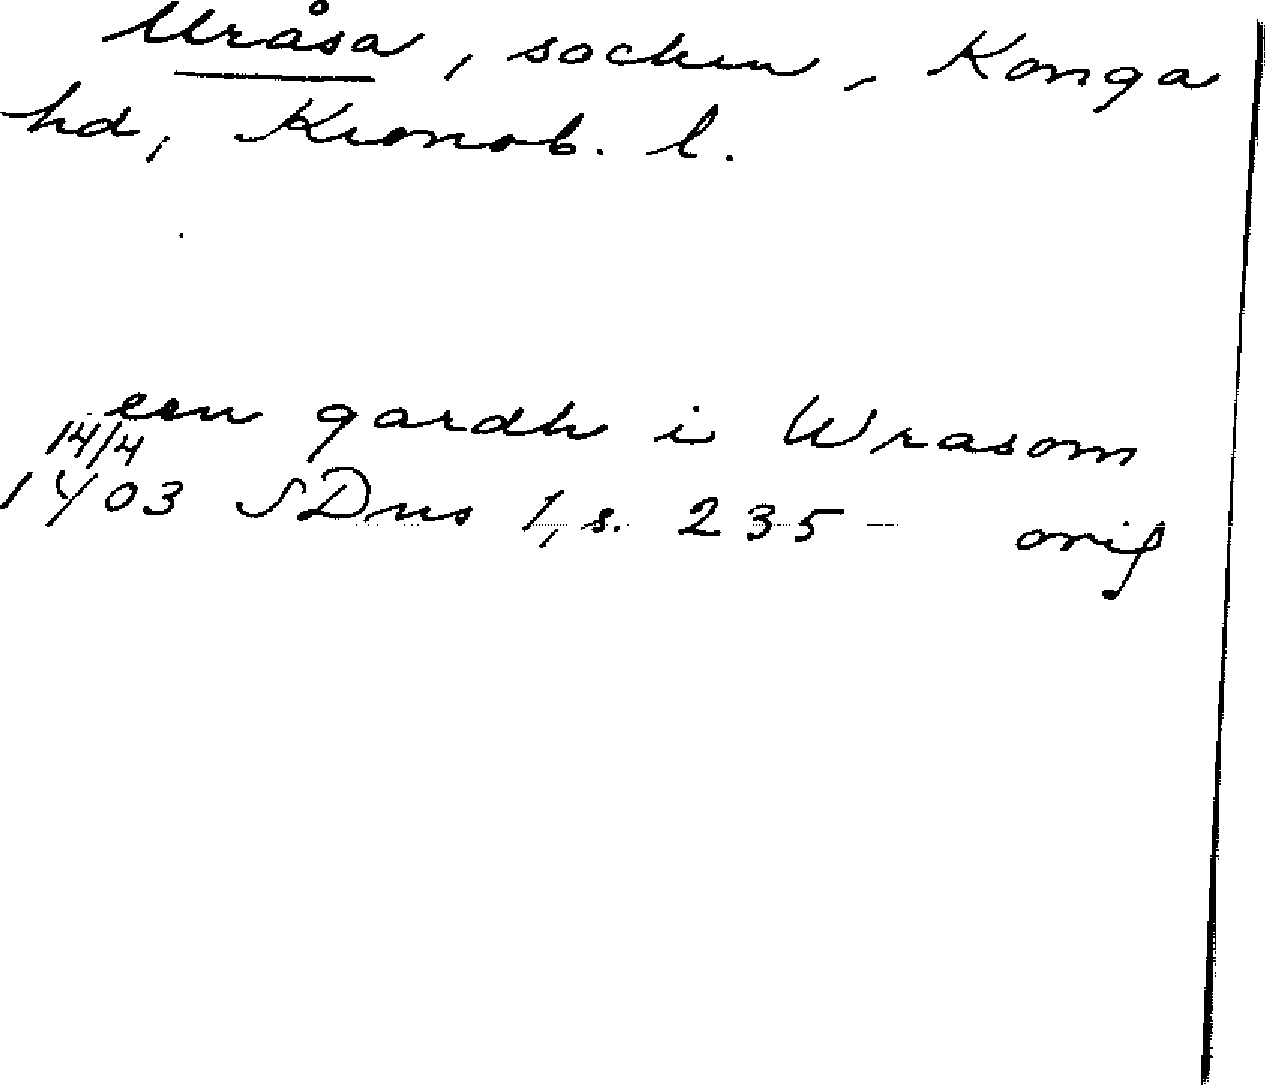 Uråsa, socken, Konga
hd, Kronob. l.
een gardh i Wrasom
14/4
1403 SDns 1, s. 235 orig